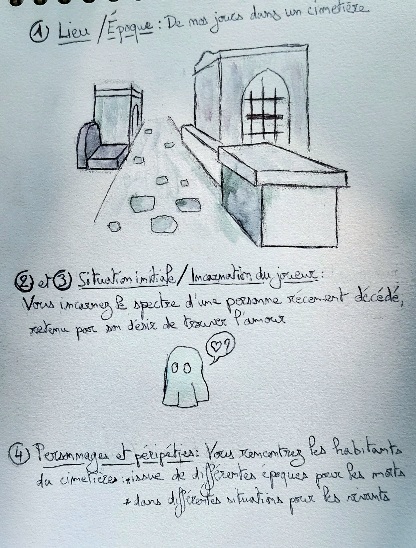 ① Lieu / Époque : De nos jours dans un cimetière
② et ③ Situation initiale / Incarnation du joueur :
Vous incarnez le spectre d'une personne récement décédé,
retenu par son désir de trouver l'amour
♡?
④ Personnages et péripéties : Vous rencontrez les habitants
du cimetières : • issue de différentes époques pour les morts
• dans différentes situations pour les vivants